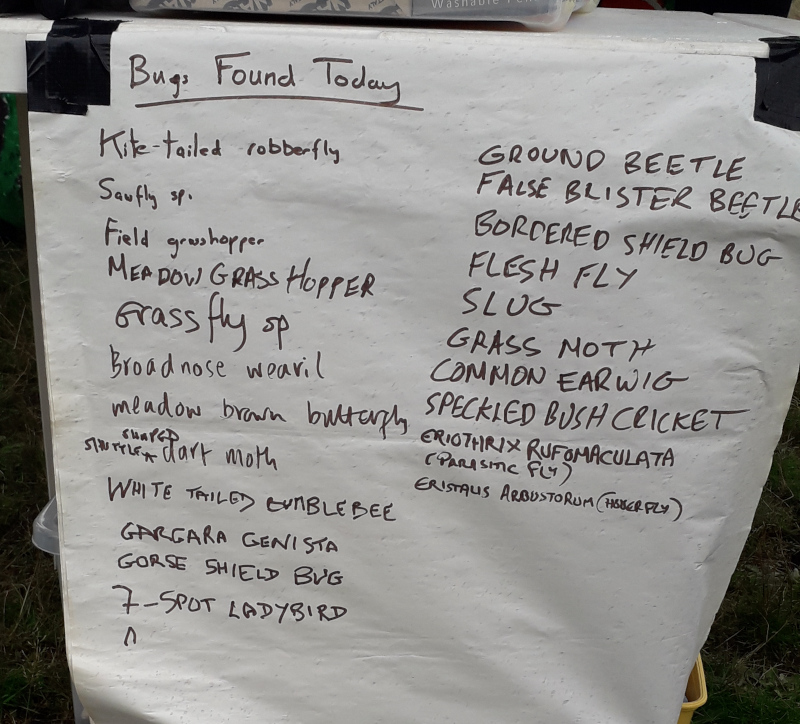 Washable
Bugs Found Today
Kite-tailed robberfly
Sawfly sp.
Field grasshopper
MEADOW GRASS HOPPER
Grass fly sp
Broadnose weavil
meadow brown butterfly
SHAPED
SHUTTLE ^ dart moth
WHITE TAILED BUMBLEBEE
GARGARA GENISTA
GORSE SHIELD BUG
7-SPOT LADYBIRD
GROUND BEETLE
FALSE BLISTER BEETLE
BORDERED SHIELD BUG
FLESH FLY
SLUG
GRASS MOTH
COMMON EARWIG
SPECKLED BUSH CRICKET
ERIOTHRIX RUFOMACULATA
(PARASITIC FLY)
ERISTALIS ARBUSTORUM (HOVERFLY)